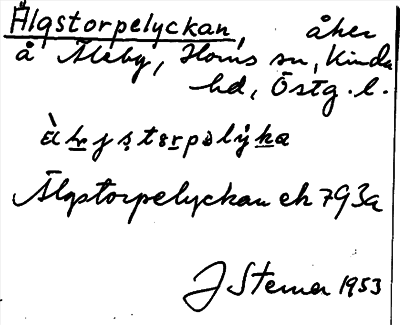 Älgstorpelyckan, åker
å Åleby, Horns sn, Kinda
hd, Östg. l.
Älgstorpelyckan ek 793a
J Sterner 1953